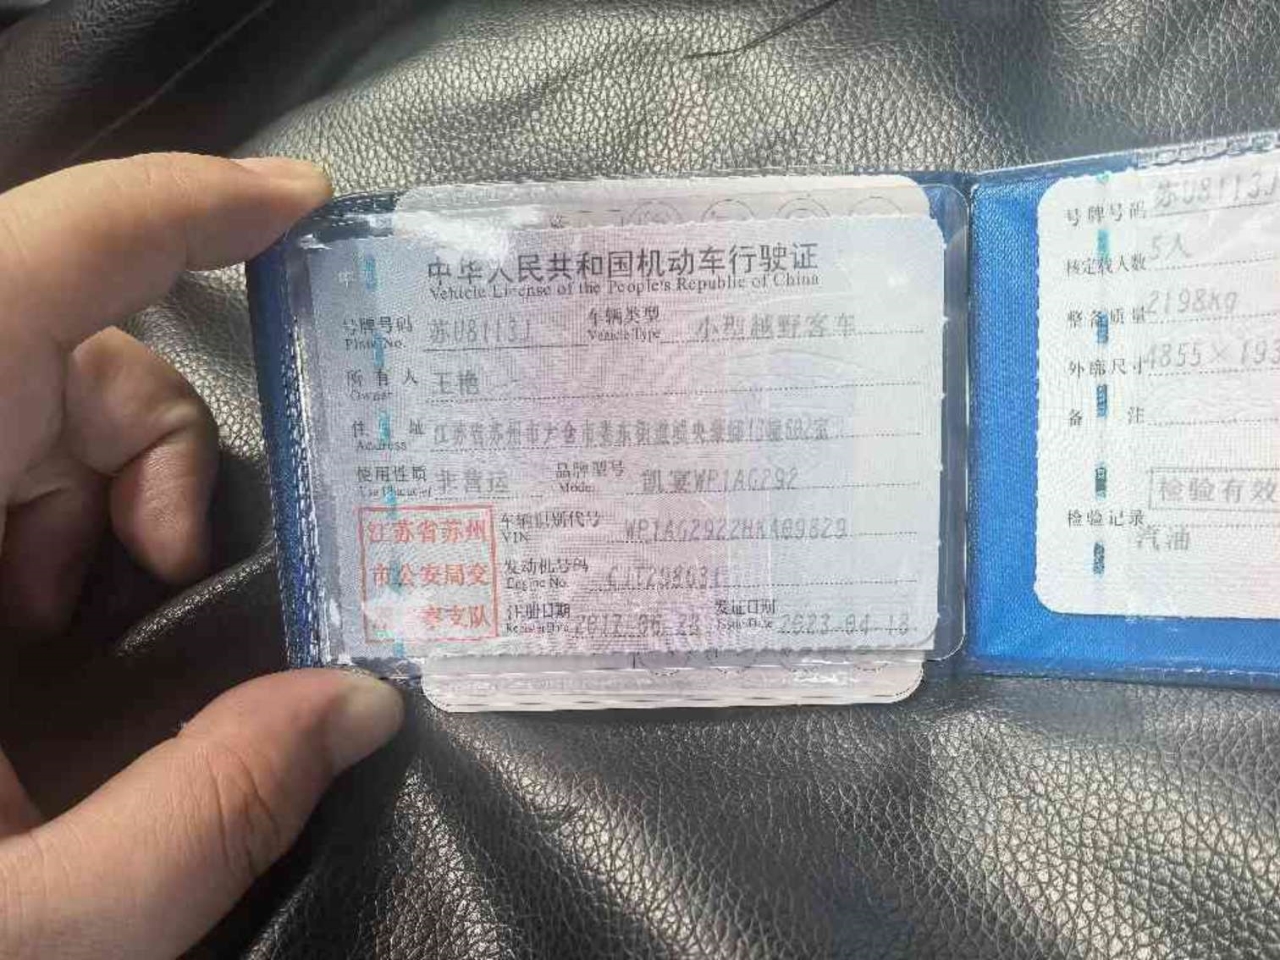 中华人民共和国机动车行驶证
Vehicle License of the People's Republic of China
号牌号码 苏U8113J 车辆类型 小型越野客车
Plate No. Vehicle Type
所有人 王艳
Owner
住址 江苏省苏州市太仓市娄东街道
Address
使用性质 非营运 品牌型号 凯宴WP1AG292
Use Character Model
江苏省苏州
市公安局交
支队
车辆识别代号 WP1AG2922HKA09829
VIN
发动机号码
Engine No.
注册日期 发证日期 2023-04-18
Register Date Issue Date
号牌号码 苏U8113J
核定载人数 5人
整备质量 2198kg
外廓尺寸 4855×193
备注
检验有效
检验记录
汽油